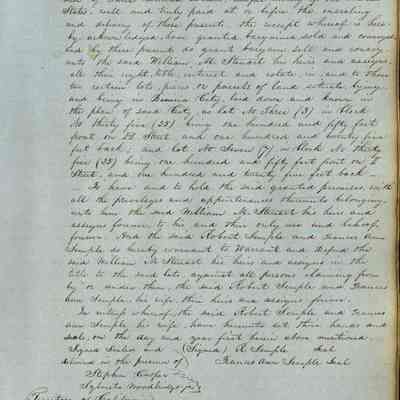 State, well and truly paid at or before the ensealing
and delivery of these presents, the receipt whereof is here-
by acknowledged, have granted bargained sold and conveyed
and by these presents do grant bargain sell and convey
unto the said William M. Steuart his heirs and assigns,
all their right, title, interest and estate in and to those
two certain lots, piece or parcels of land situate lying
and being in Benicia City, laid down and known in
the plan of said City, as lot No Three (3) in Block
No thirty five (35) being one hundred and fifty feet
front on Street and one hundred and twenty five
feet back; and lot No Seven (7) in Block No thirty
five (35) being one hundred and fifty feet front on
Street, and one hundred and twenty five feet back -
- To have and to hold the said granted premises, with
all the privileges and appurtenances thereunto belonging
unto him the said William M. Steuart his heirs and
assigns forever to his and their only use and behoof
forever. And the said Robert Semple and Frances Ann
Semple do hereby covenant to Warrant and defend the
said William M. Steuart his heirs and assigns in the
title to the said lots, against all persons claiming from
by or under them, the said Robert Semple and Frances
Ann Semple his wife, their heirs and assigns forever.
In witness whereof, the said Robert Semple and Frances
Ann Semple his wife, have hereunto set their hands and
seals, on the day and year first herein above mentioned.
Signed Sealed and (Signed) R. Semple Seal
delivered in the presence of Frances Ann Semple Seal
Stephen Cooper
Sylvester Woodbridge, Jr